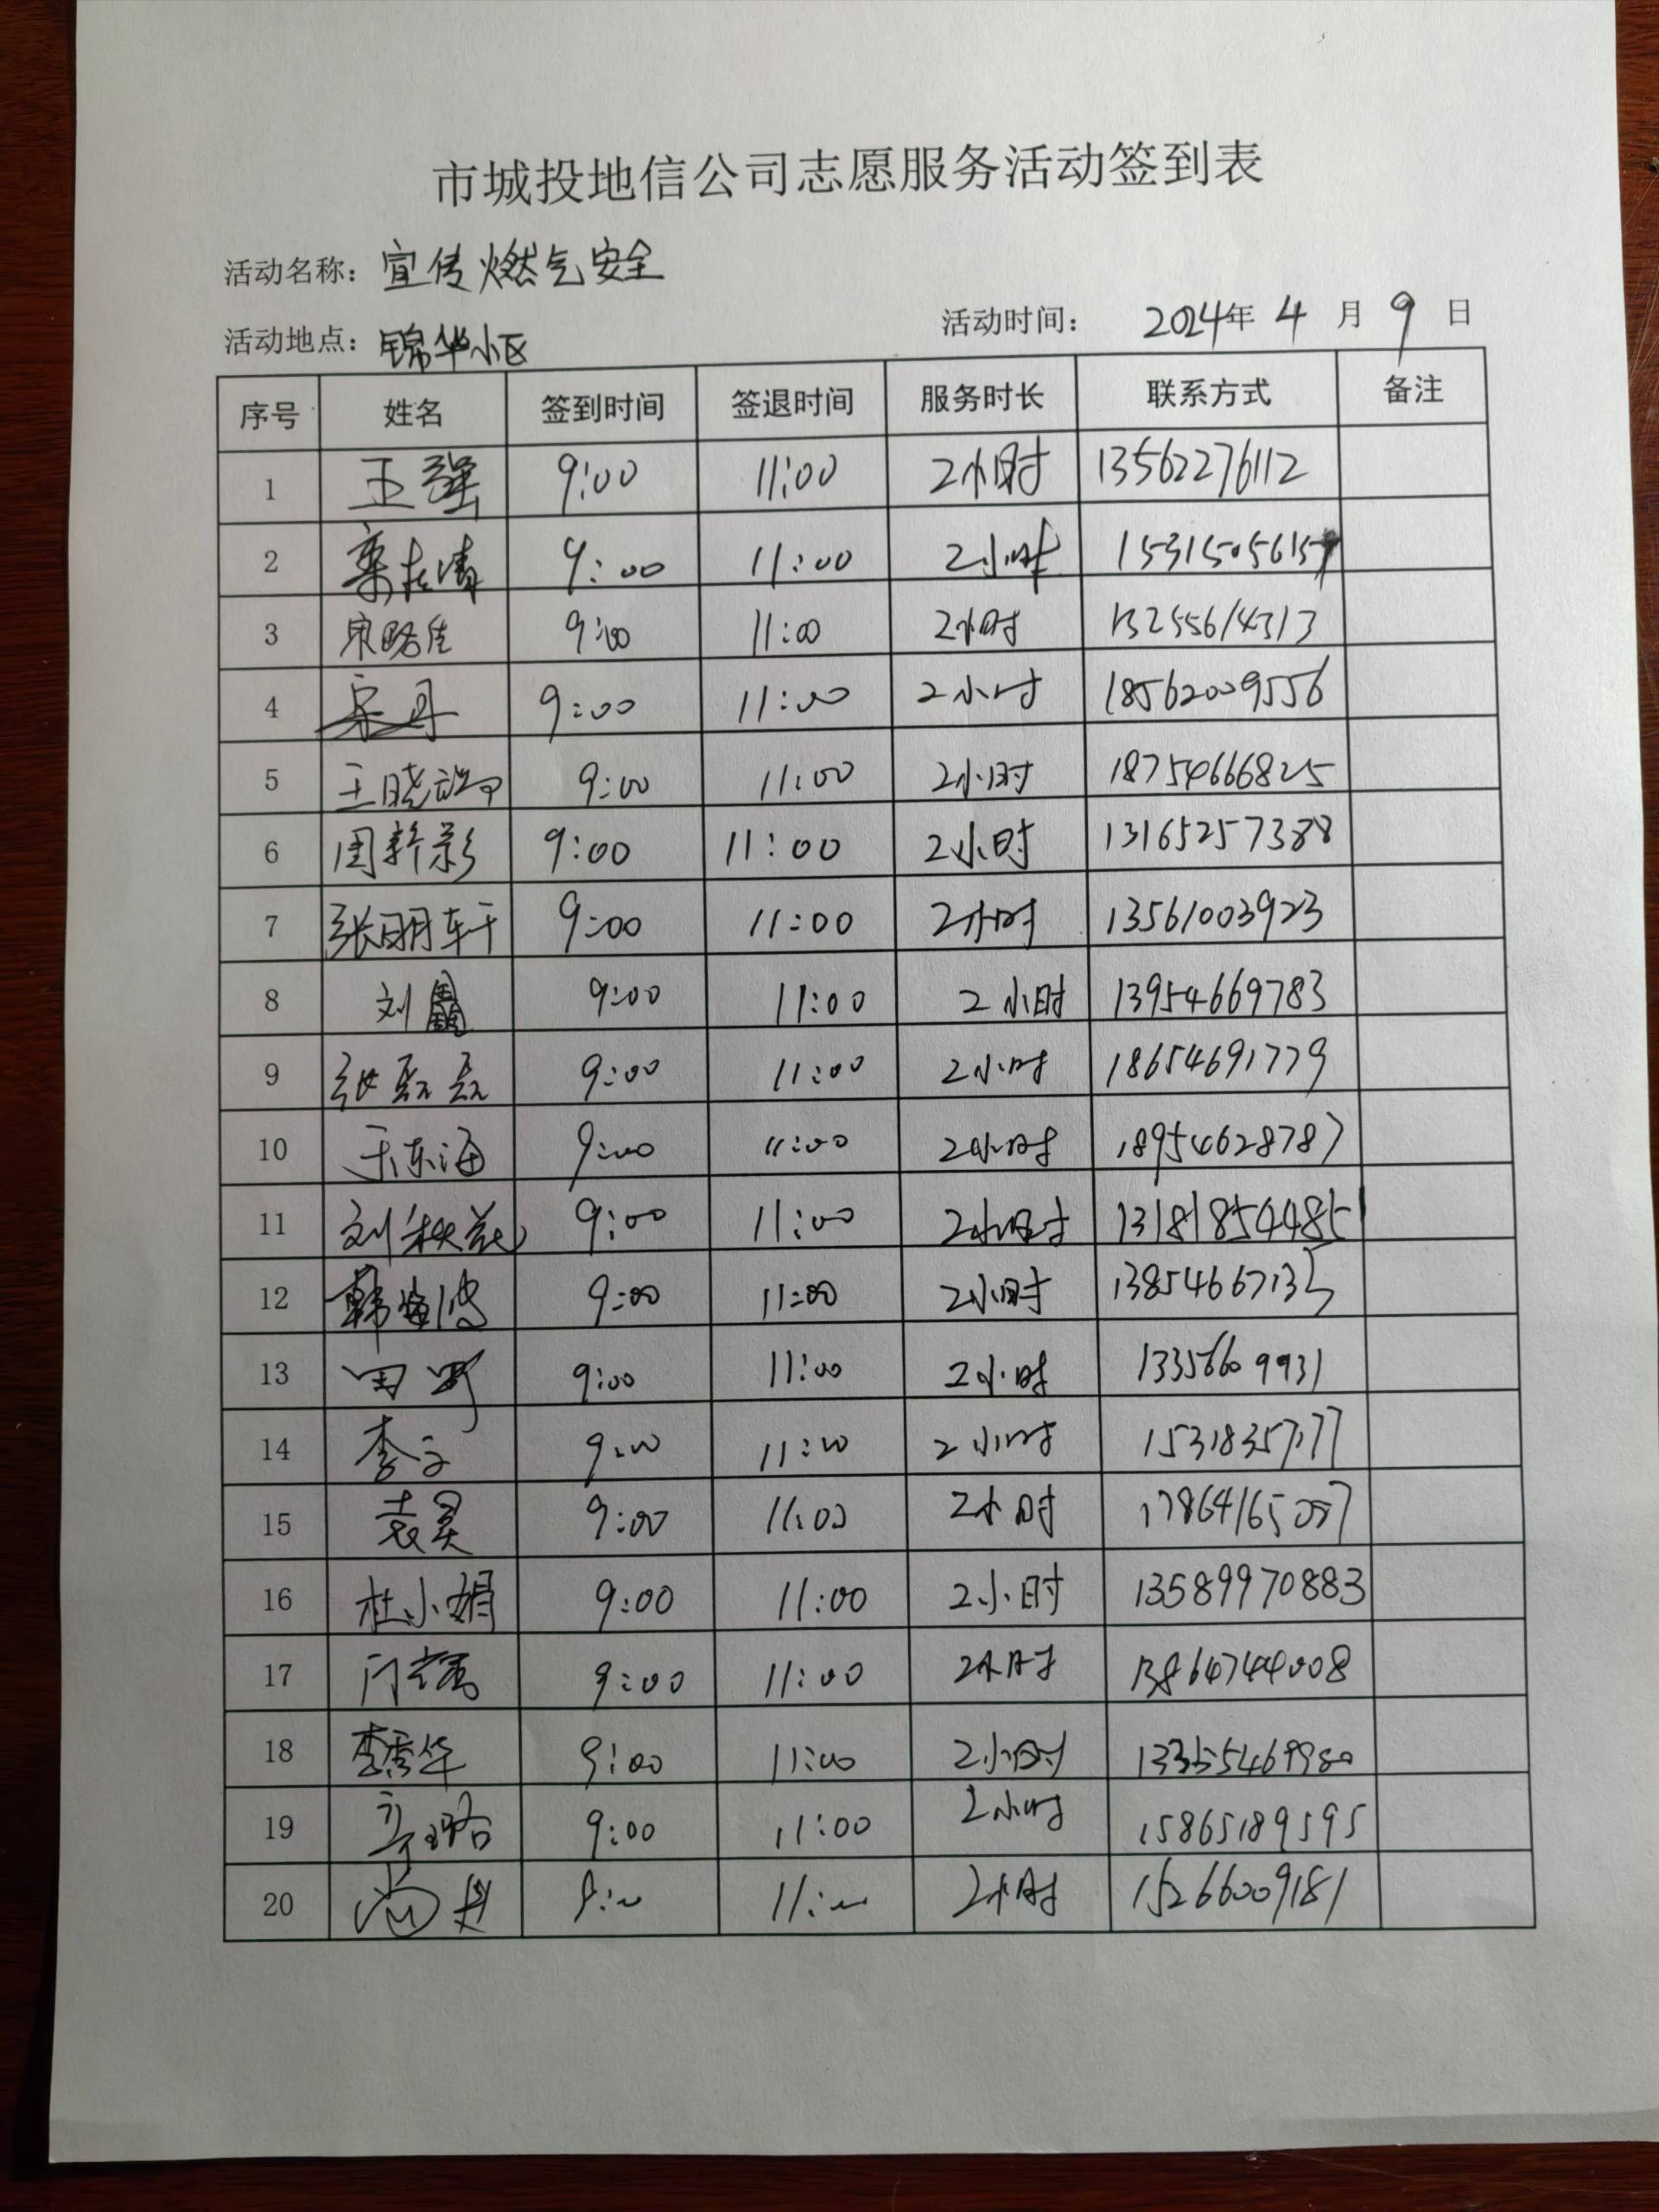 市城投地信公司志愿服务活动签到表
活动名称：宣传燃气安全
活动地点：锦华小区 活动时间： 2024年 4 月 9 日
序号 姓名 签到时间 签退时间 服务时长 联系方式 备注
1 王强 9:00 11:00 2小时 13562276112
2 9:00 11:00 2小时
3 9:00 11:00 2小时 13255614313
4 9:00 11:00 2小时 18562009556
5 9:00 11:00 2小时 18754666825
6 周新影 9:00 11:00 2小时 13165257388
7 张明轩 9:00 11:00 2小时 13561003923
8 刘 9:00 11:00 2小时 13954669783
9 9:00 11:00 2小时 18654691779
10 于东海 9:00 11:00 2小时 18954628787
11 9:00 11:00 2小时 13181854485
12 韩海波 9:00 11:00 2小时 13854667135
13 田野 9:00 11:00 2小时
14 9:00 11:00 2小时 15318357177
15 袁昊 9:00 11:00 2小时
16 杜小娟 9:00 11:00 2小时 13589970883
17 9:00 11:00 2小时 13864744008
18 李秀华 9:00 11:00 2小时
19 9:00 11:00 2小时 15865189595
20 9:00 11:00 2小时 15266009181